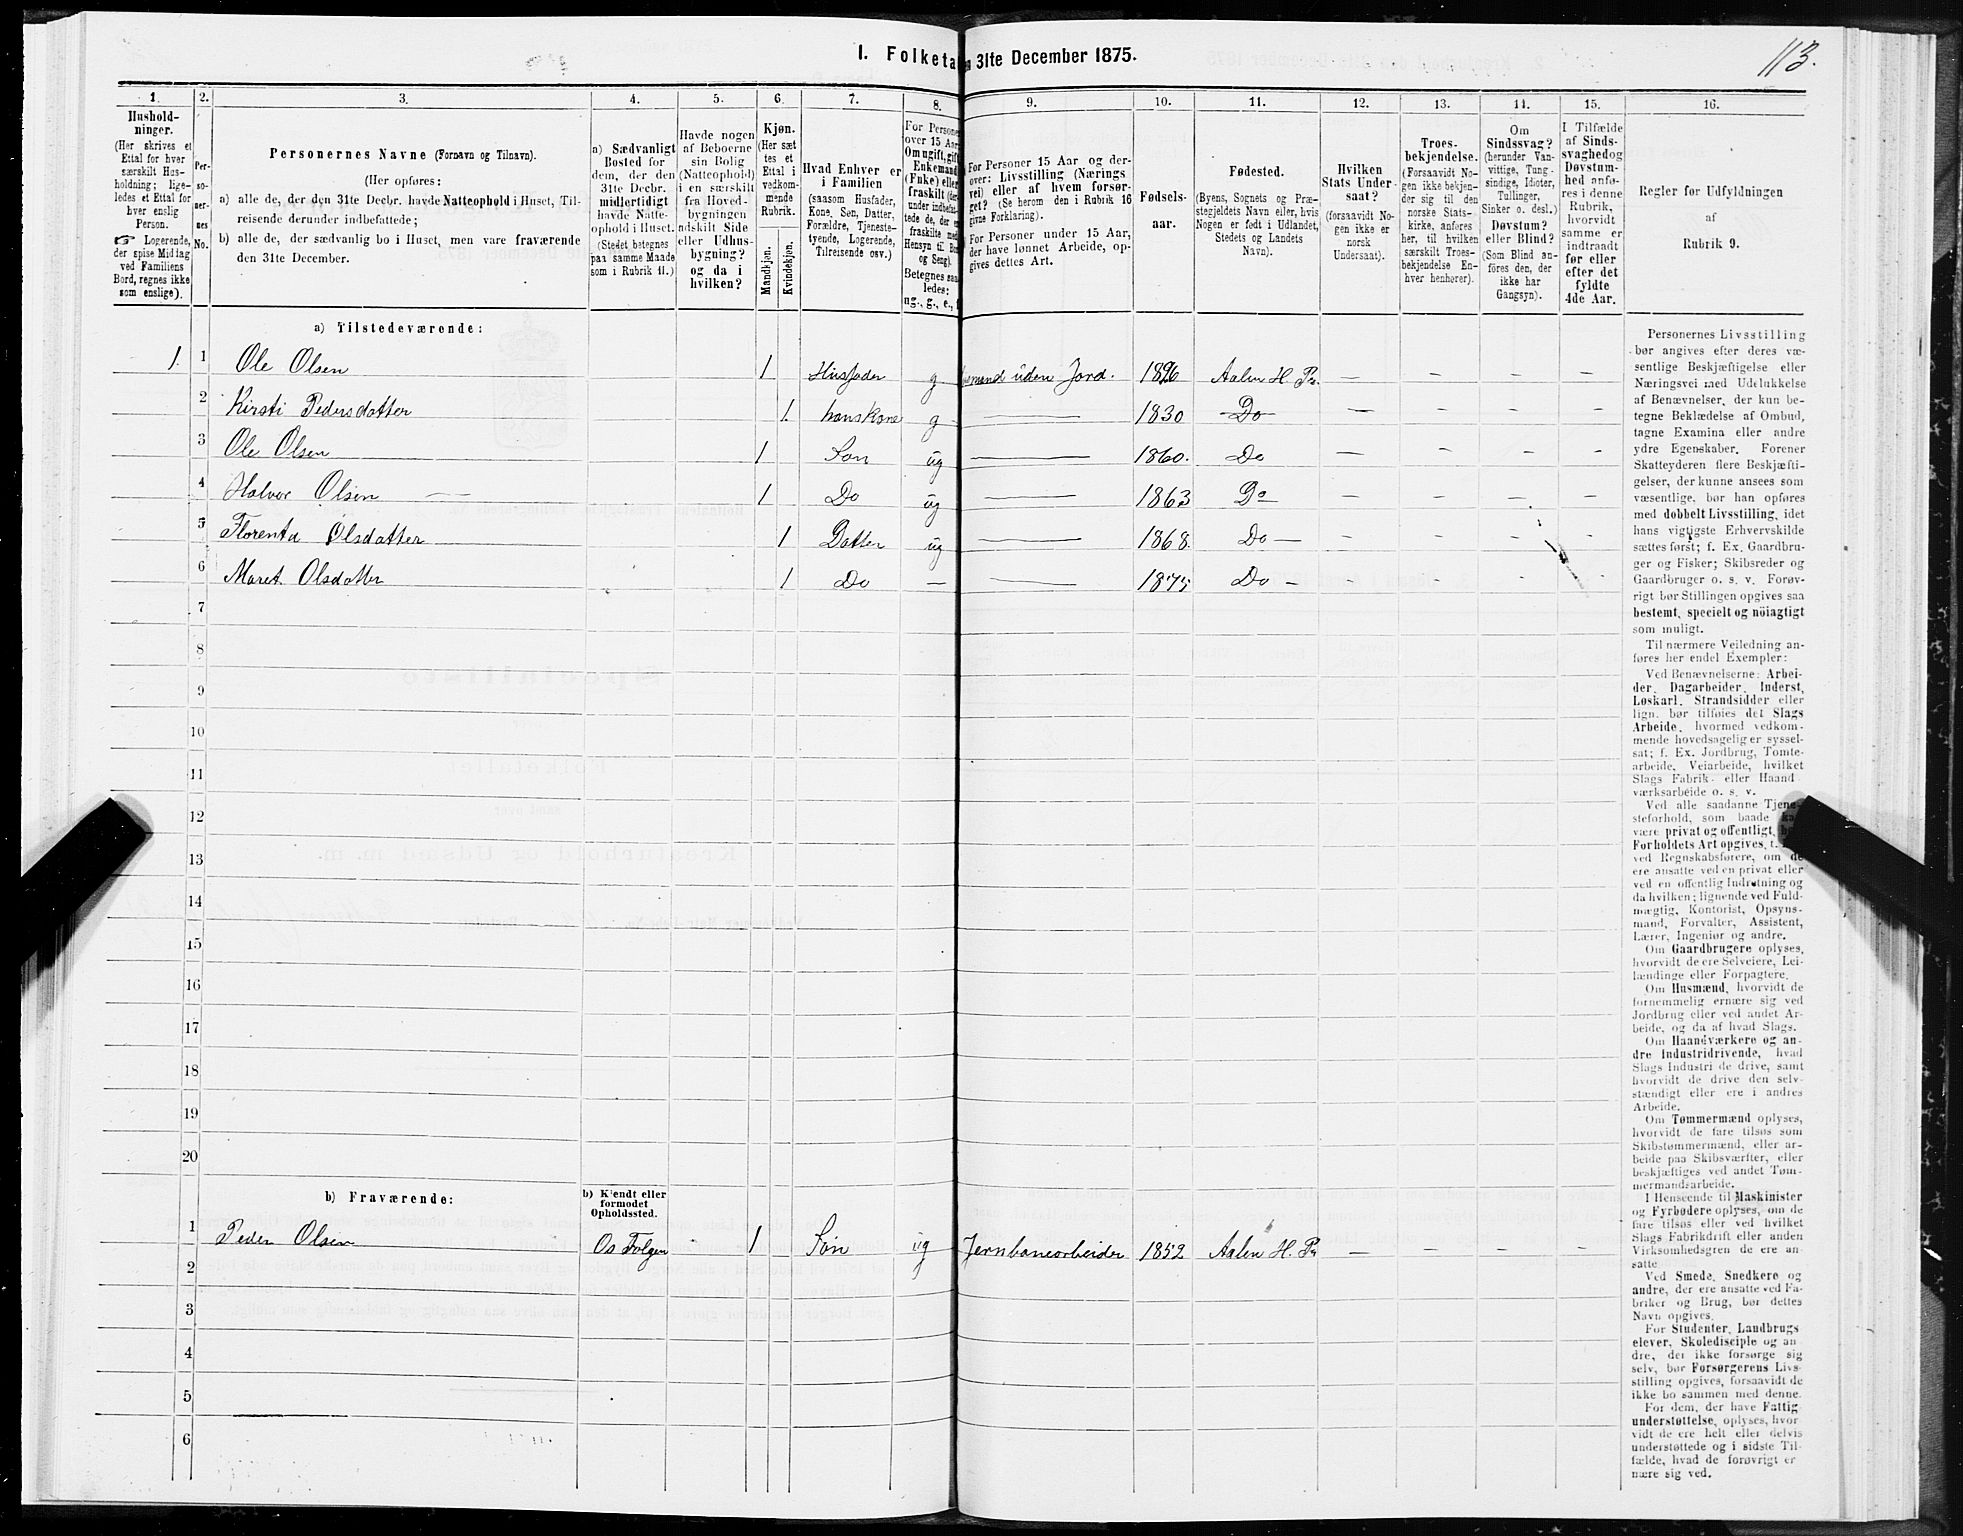 113.
I. Folketa n 31te December 1875.
1. 2. 3. 4. 5. 6. 7. 8. 9. 10. 11. 12. 13. 14. 15. 16.
Hushold-
ninger.
(Her skrives et
Ettal for hver
særskilt Hus-
holdning; lige-
ledes et Ettal for
hver enslig
Person.
☞ Logerende,
der spise Middag
ved Familiens
Bord, regnes ikke
som enslige).
Per-
so-
ner-
nes
No.
Personernes Navne (Fornavn og Tilnavn).
(Her opføres:
a) alle de, der den 31te Decbr. havde Natteophold i Huset, Til-
reisende derunder indbefattede;
b) alle de, der sædvanlig bo i Huset, men vare fraværende
den 31te December.
a) Sædvanligt
Bosted for
dem, der den
31te Decbr.
midlertidigt
havde Natte-
ophold i Huset.
(Stedet betegnes
paa samme Maade
som i Rubrik 11.)
Havde nogen
af Beboerne
sin Bolig
(Natteophold)
i en særskilt
fra Hoved-
bygningen
adskilt Side
eller Udhus-
bygning?
og da i
hvilken?
Kjøn.
(Her sæt
tes et
Ettal i
vedkom-
mende
Rubrik.
Mandkjøn.
Kvindekjøn.
Hvad Enhver er
i Familien
(saasom Husfader,
Kone, Søn, Datter,
Forældre, Tjeneste-
tyende, Logerende,
Tilreisende osv.)
For Persone
over 15 Aar
Om ugift, gift
Enkemand
(Enke) eller
fraskilt (der
under indbefat-
tede de, der er
fraskilte med
Hensyn til Bo
og Seng).
Betegnes saa
ledes:
ug., g., e., f
For Personer 15 Aar og der-
over: Livsstilling (Nærings
vei) eller af hvem forsør-
get? (Se herom den i Rubrik 16
givne Forklaring).
For Personer under 15 Aar,
der have lønnet Arbeide, op-
gives dettes Art.
Fødsels-
aar.
Fødested.
(Byens, Sognets og Præ-
stegjeldets Navn eller, hvis
Nogen er født i Udlandet,
Stedets og Landets
Navn).
Hvilken
Stats Under-
saat?
(forsaavidt No-
gen ikke er
norsk
Undersaat).
Troes-
bekjendelse.
(Forsaavidt No-
gen ikke bekjen-
der sig til den
norske Stats-
kirke, anføres
her, til hvilken
særskilt Troes-
bekjendelse En-
hver henhører).
Om
Sindssvag?
(herunder Van-
vittige, Tung-
sindige, Idioter,
Tullinger,
Sinker o. desl.)
Døvstum?
eller Blind?
(Som Blind an-
føres den, der
ikke har
Gangsyn).
I Tilfælde
af Sinds-
svaghed og
Døvstum-
hed anfø-
res i denne
Rubrik,
hvorvidt
samme er
indtraadt
før eller
efter det
fyldte
4de Aar.
Regler før Udfyldningen
af
Rubrik 9.
a) Tilstedeværende:
1. 1 Ole Olsen 1 Husfader g mand uden Jord. 1826 Aalen H. Pr. — — — —
2 Kirsti Pedersdatter 1. hans Kone g — 1830 Do — — — —
3 Ole Olsen 1 Søn ug — 1860. Do — — — —
4 Halvor Olsen 1 Do ug — 1863 Do — — — —
5 Florenta Olsdatter 1 Datter ug — 1868 Do — — — — —
6 Maret Olsdatter 1 Do — — 1875 Do — — — — —
7
8
9
10
11
12
13
14
15
16
17
18
19
20
b) Fraværende:
b) Kjendt eller
formodet
Opholdssted.
1 Peder Olsen Os Tolgen 1 Søn ug Jernbanearbeider 1852 Aalen H. Pr — — — —
2
3
4
5
6
Personernes Livsstilling
bør angives efter deres væ-
sentlige Beskjæftigelse eller
Næringsvei med Udelukkelse
af Benævnelser, der kun be-
tegne Beklædelse af Ombud,
tagne Examina eller andre
ydre Egenskaber. Forener
Skatteyderen flere Beskjæfti-
gelser, der kunne ansees som
væsentlige, bør han opføres
med dobbelt Livsstilling, idet
hans vigtigste Erhvervskilde
sættes først; f. Ex. Gaardbru-
ger og Fisker; Skibsreder og
Gaardbruger o. s. v. Forøv-
rigt bør Stillingen opgives saa
bestemt, specielt og nöiagtigt
som muligt.
Til nærmere Veiledning an-
føres her endel Exempler:
Ved Benævnelserne: Arbei-
der, Dagarbeider, Inderst,
Løskarl, Strandsidder eller
lign. bør tilføies det Slags
Arbeide, hvormed vedkom-
mende hovedsagelig er syssel-
sat; f. Ex. Jordbrug, Tomte-
arbeide, Veiarbeide, hvilket
Slags Fabrik- eller Haand
værksarbeide o. s. v.
Ved alle saadanne Tjene-
steforhold, som baade ka
være privat og offentligt, b
Forholdets Art opgives, t.
ved Regnskabsførere, om de
ere ansatte ved en privat eller
ved en offentlig Indretning og
da hvilken; lignende ved Fuld-
mægtig, Kontorist, Opsyns-
mand, Forvalter, Assistent,
Lærer, Ingeniør og andre.
Om Gaardbrugere oplyses,
hvorvidt de ere Selveiere, Lei-
lændinge eller Forpagtere.
Om Husmænd, hvorvidt de
fornemmelig ernære sig ved
Jordbrug eller ved andet Ar-
beide, og da af hvad Slags.
Om Haandværkere og an-
dre Industridrivende, hvad
Slags Industri de drive, samt
hvorvidt de drive den selv-
stændigt eller ere i andres
Arbeide.
Om Tømmermænd oplyses,
hvorvidt de fare tilsøs som
Skibstømmermænd, eller ar-
beide paa Skibsværfter, eller
beskjæftiges ved andet Tøm-
mermandsarbeide.
I Henseende til Maskinister
og Fyrbødere oplyses, om de
fare tilsøs eller ved hvilket
Slags Fabrikdrift eller anden
Virksomhedsgren de ere an-
satte
Ved Smede, Snedkere og
andre, der ere ansatte ved Fa-
briker og Brug, bør dettes
Navn opgives.
For Studenter, Landbrugs
elever, Skoledisciple og an-
dre, der ikke forsørge sig
selv, bør Forsørgerens Livs-
stilling opgives, forsaavidt de
ikke bo sammen med denne.
For dem, der have Fattig
understøttelse, oplyses, hvor-
vidt de ere helt eller delvis
understøttede og i sidste Til-
fælde, hvad de forøvrigt er
nære sig ved.